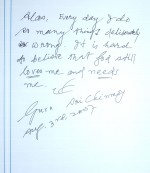 Alas, Every day I do
so many things deliberately
wrong. It is hard
to believe that God still
loves me and needs
me.
Guru Sri Chinmoy